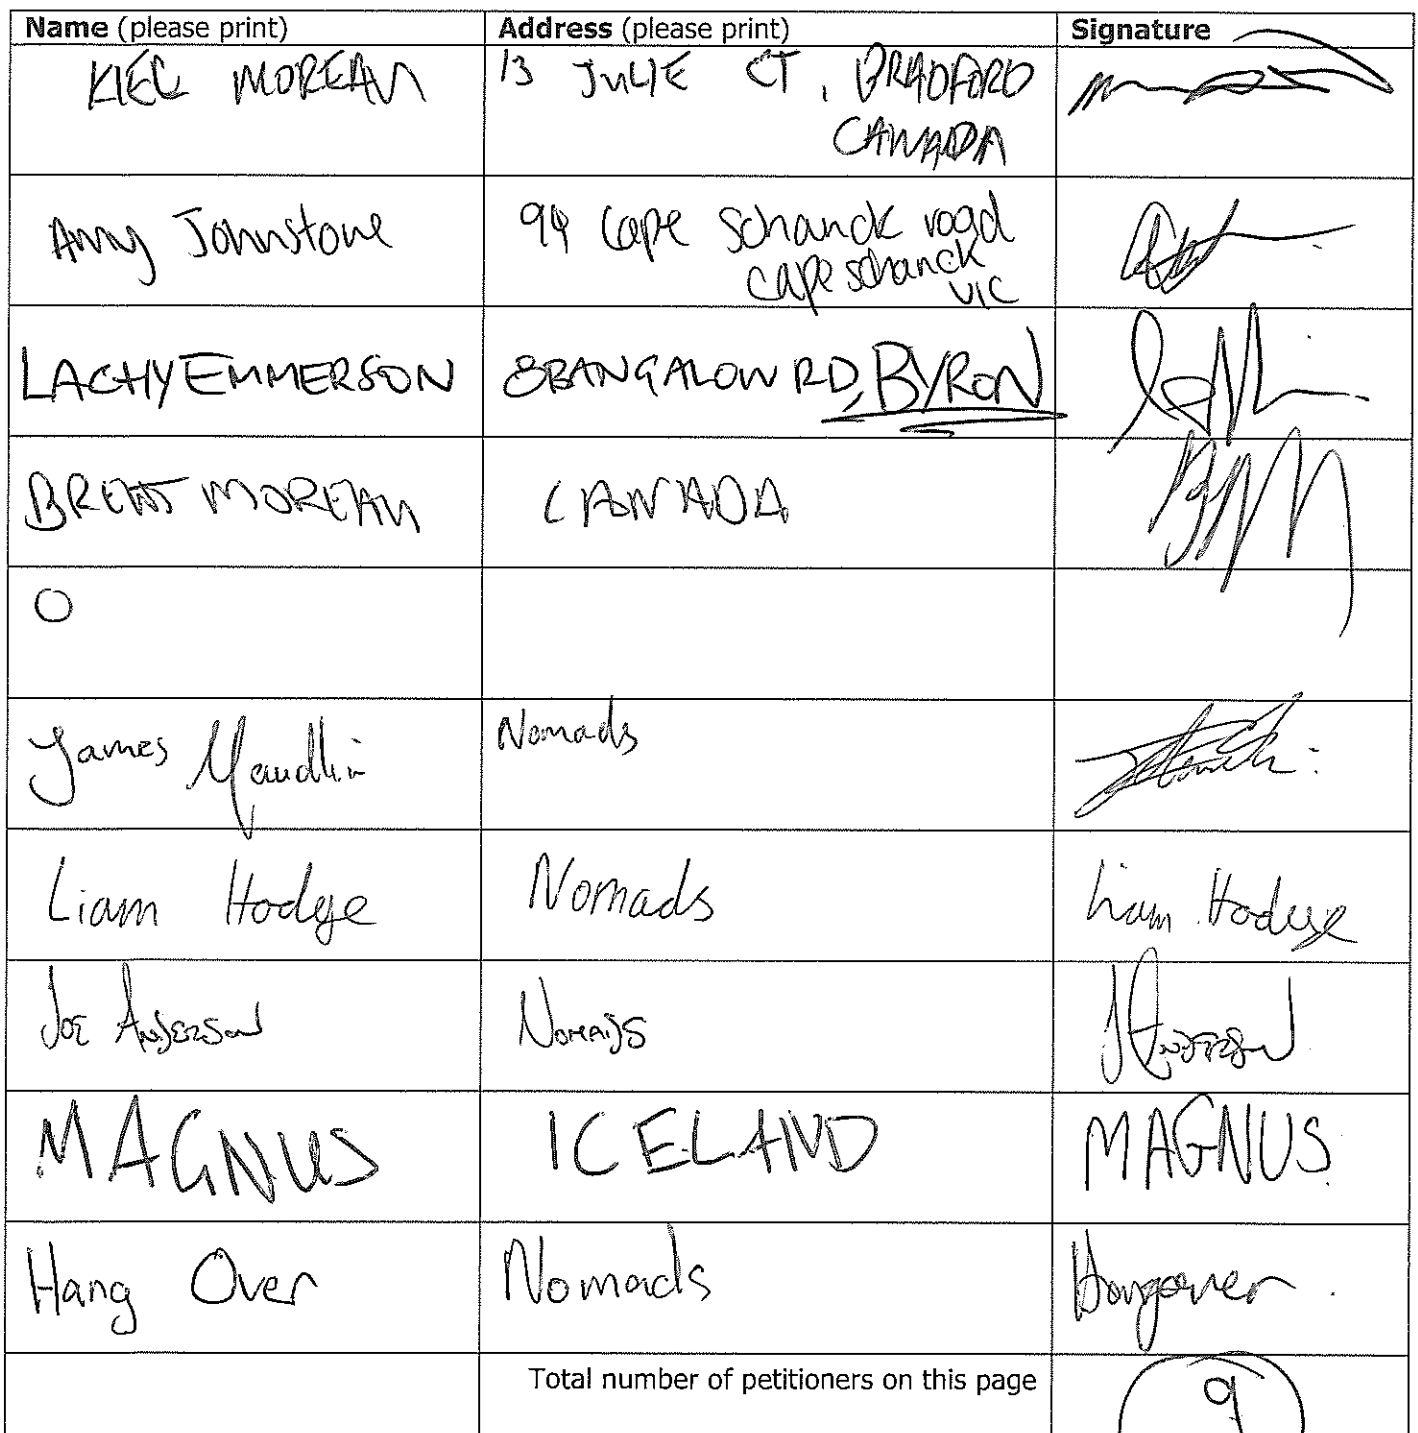 Name (please print) Address (please print) Signature
KIEL MOREAU 13 JULIE CT, BRADFORD
CANADA
Amy Johnstone 94 Cape Schanck road
cape schanck
VIC
LACHY EMMERSON 8 BANGALOW RD, BYRON
BRENT MOREAU CANADA
O
James Maudlin Nomads
Liam Hodge Nomads Liam Hodge
JOE ANDERSON NOMADS J ANDERSON
MAGNUS ICELAND MAGNUS.
Hang Over Nomads Hangover.
Total number of petitioners on this page 9